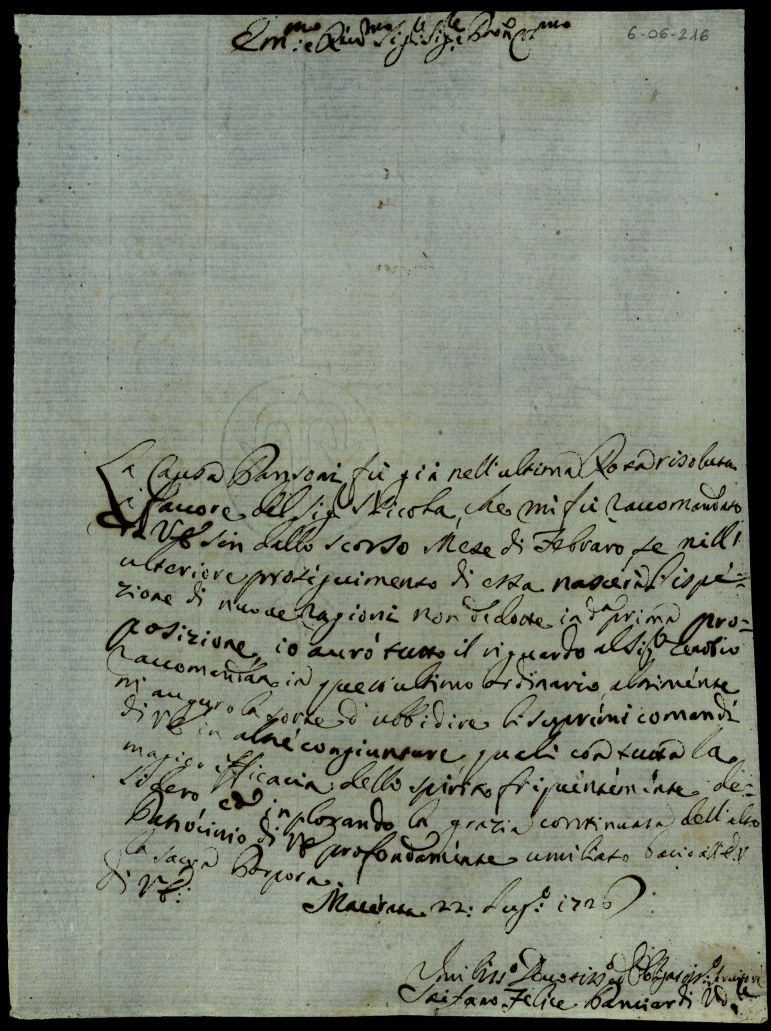 Em.mo e Rev.mo Sig.re Sig.re e Pron Col.mo
6-06-216
La Causa Pansoni fù già nell'ultima Rota risoluta
à favore del Sig.r Nicola, che mi fù raccomandato
da V.E. sin dallo scorso Mese di Febraro, se nell'
ulteriore proseguimento di essa nascerà l'ispe-
zione di nuove ragioni non dedotte in d.a prima pro-
posizione, io aurò tutto il riguardo al Sig.r
raccomandato in quest'ultimo ordinario altrimente
mi auguro la sorte d'ubbidire li supremi comandi
di V.E. in altre congiunture, quali con tutta la
maggior efficacia dello spirito frequentemente de-
sidero, ed implorando la grazia continuata dell'alto
Patrocinio di V.E. profondamente umiliato bacio all'E.V.
la sacra Porpora.
di V.E.
Macerata 22: Lug.o 1726
Umiliss.o Devotiss.o ed Obligatiss.o Servitore
Gaetano Felice